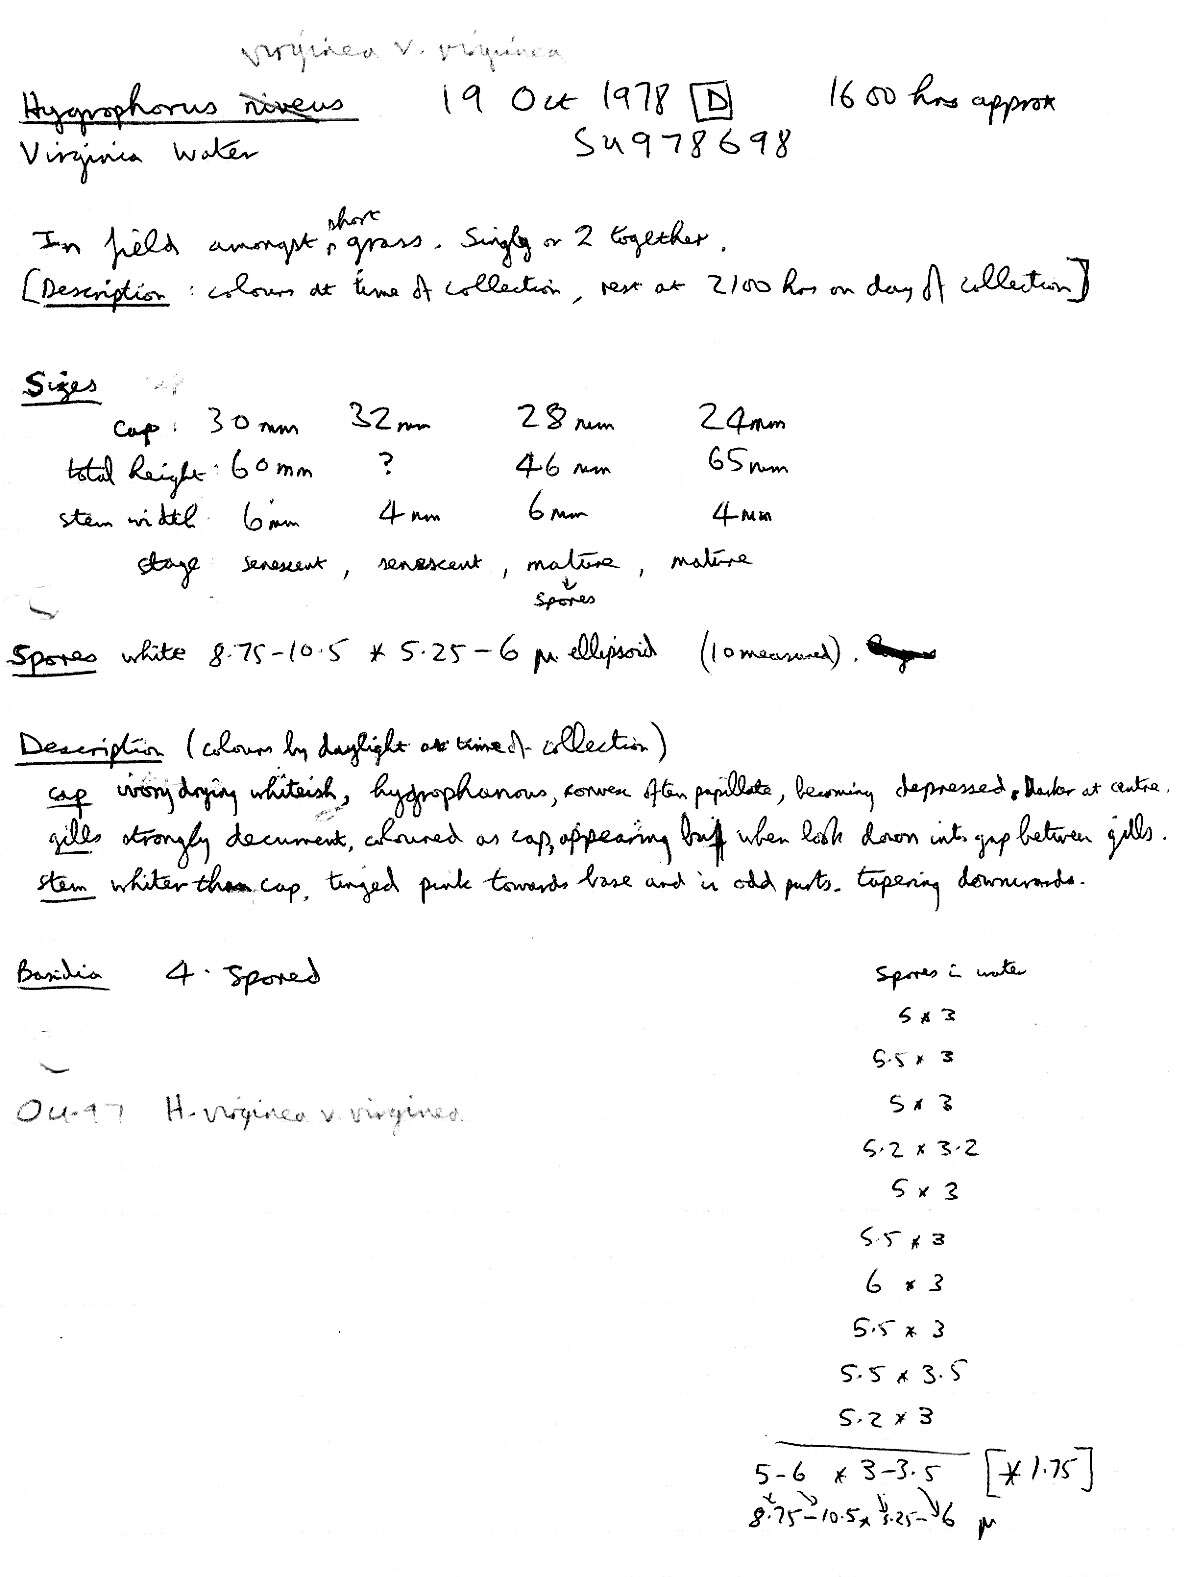 virginea v. virginea
Hygrophorus niveus 19 Oct 1978 D 1600 hrs approx
Virginia Water SU978698
short
In field amongst grass. Singly or 2 together.
[Description : colours at time of collection, rest at 2100 hrs on day of collection]
Sizes
cap : 30mm 32mm 28mm 24mm
total height : 60mm ? 46mm 65mm
stem width 6mm 4mm 6mm 4mm
stage senescent, senescent, mature, mature
↓
spores
Spores white 8.75-10.5 * 5.25-6 μ ellipsoid (10 measured).
Description (colours by daylight at time of collection)
cap ivory drying whiteish, hygrophanous, convex often papillate, becoming depressed, darker at centre.
gills strongly decurrent, coloured as cap, appearing buff when look down into gap between gills.
stem whiter than cap, tinged pink towards base and in odd parts. tapering downwards.
Basidia 4. Spored
Spores in water
5 * 3
5.5 * 3
Oct 97 H. virginea v. virginea
5 * 3
5.2 * 3.2
5 * 3
5.5 * 3
6 * 3
5.5 * 3
5.5 * 3.5
5.2 * 3
5-6 * 3-3.5 [* 1.75]
8.75-10.5 * 5.25-6 μ